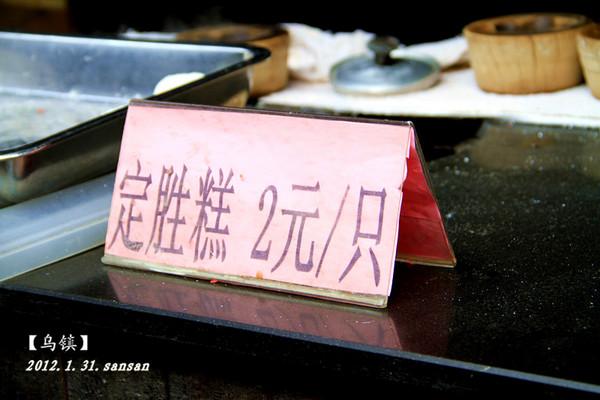 定胜糕 2元/只
【乌镇】
2012.1.31.sansan